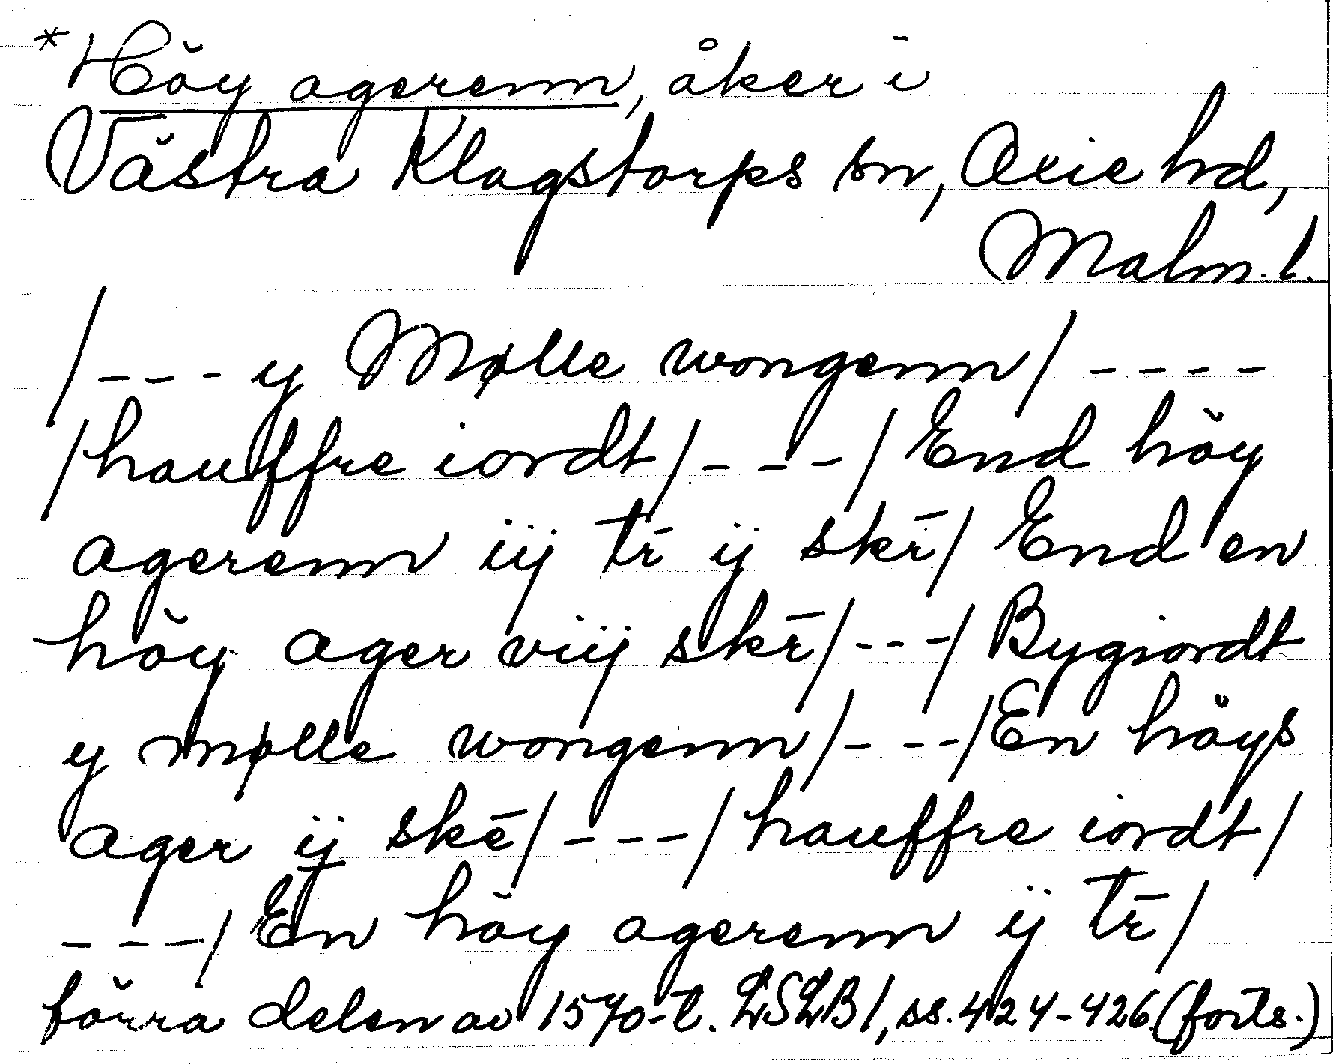 *Höy agerenn, åker i
Västra Klagstorps sn, Oxie hd,
Malm. l.
/--- y Mølle wongenn/ ----
/hauffre iordt/---/End höy
agerenn iij tr̄ ij skr̄/ End en
höy ager viij skr̄/---/ Bygiordt
y mølle wongenn/---/En höys
ager ij skē/---/hauffre iordt/
---/En höy agerenn ij tr̄/
förra delen av 1570-t. LSLB 1, ss. 424-426 (forts.)